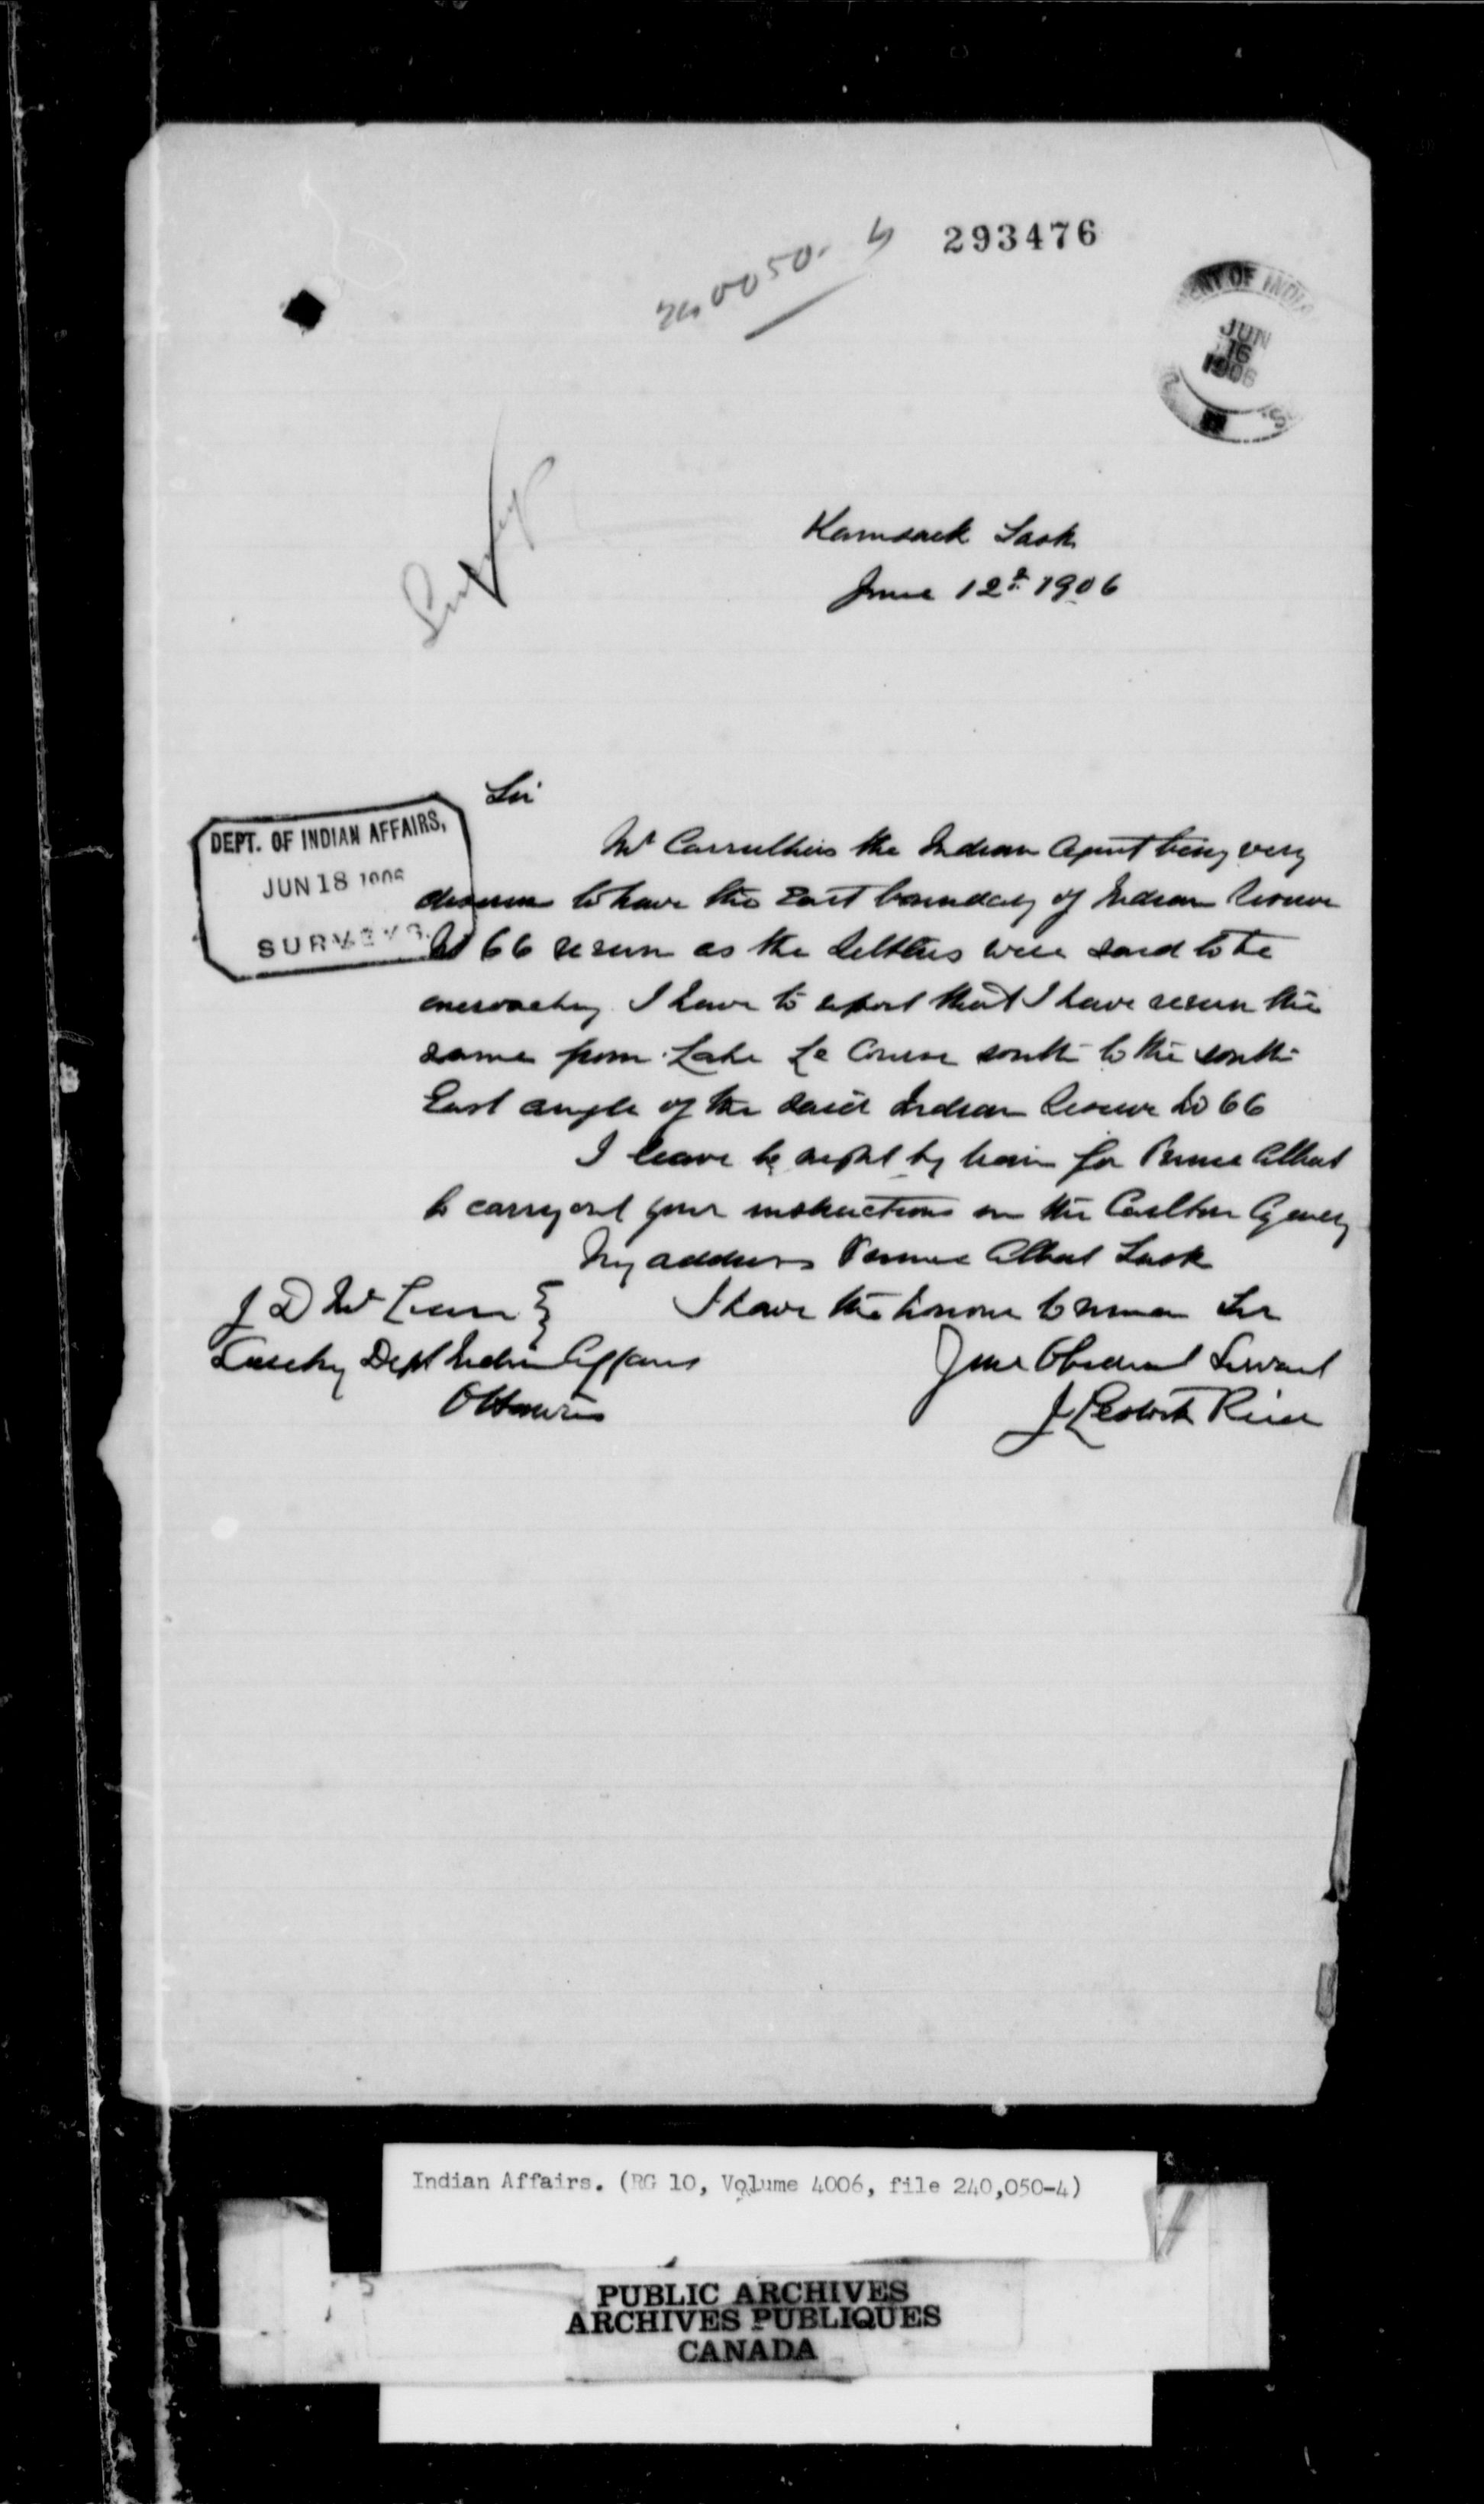 293476
240050-4
JUN
16
1906
Survey
Kamsack Sask
June 12th 1906
Sir
DEPT. OF INDIAN AFFAIRS,
JUN 18 1906
SURVEYS.
Mr Carruthers the Indian Agent being very
desirous to have the East boundary of Indian Reserve
No 66 rerun as the settlers were said to be
encroaching I have to report that I have rerun the
same from Lake La Course south to the south
East angle of the said Indian Reserve No 66
I leave to night by train for Prince Albert
to carry out your instructions on the Carlton Agency
My address Prince Albert Sask
I have the honour to remain Sir
Your Obedient Servant
J Lestock Reid
J D McLean
Secretary Dept Indian Affairs
Ottawa
Indian Affairs. (RG 10, Volume 4006, file 240,050-4)
PUBLIC ARCHIVES
ARCHIVES PUBLIQUES
CANADA